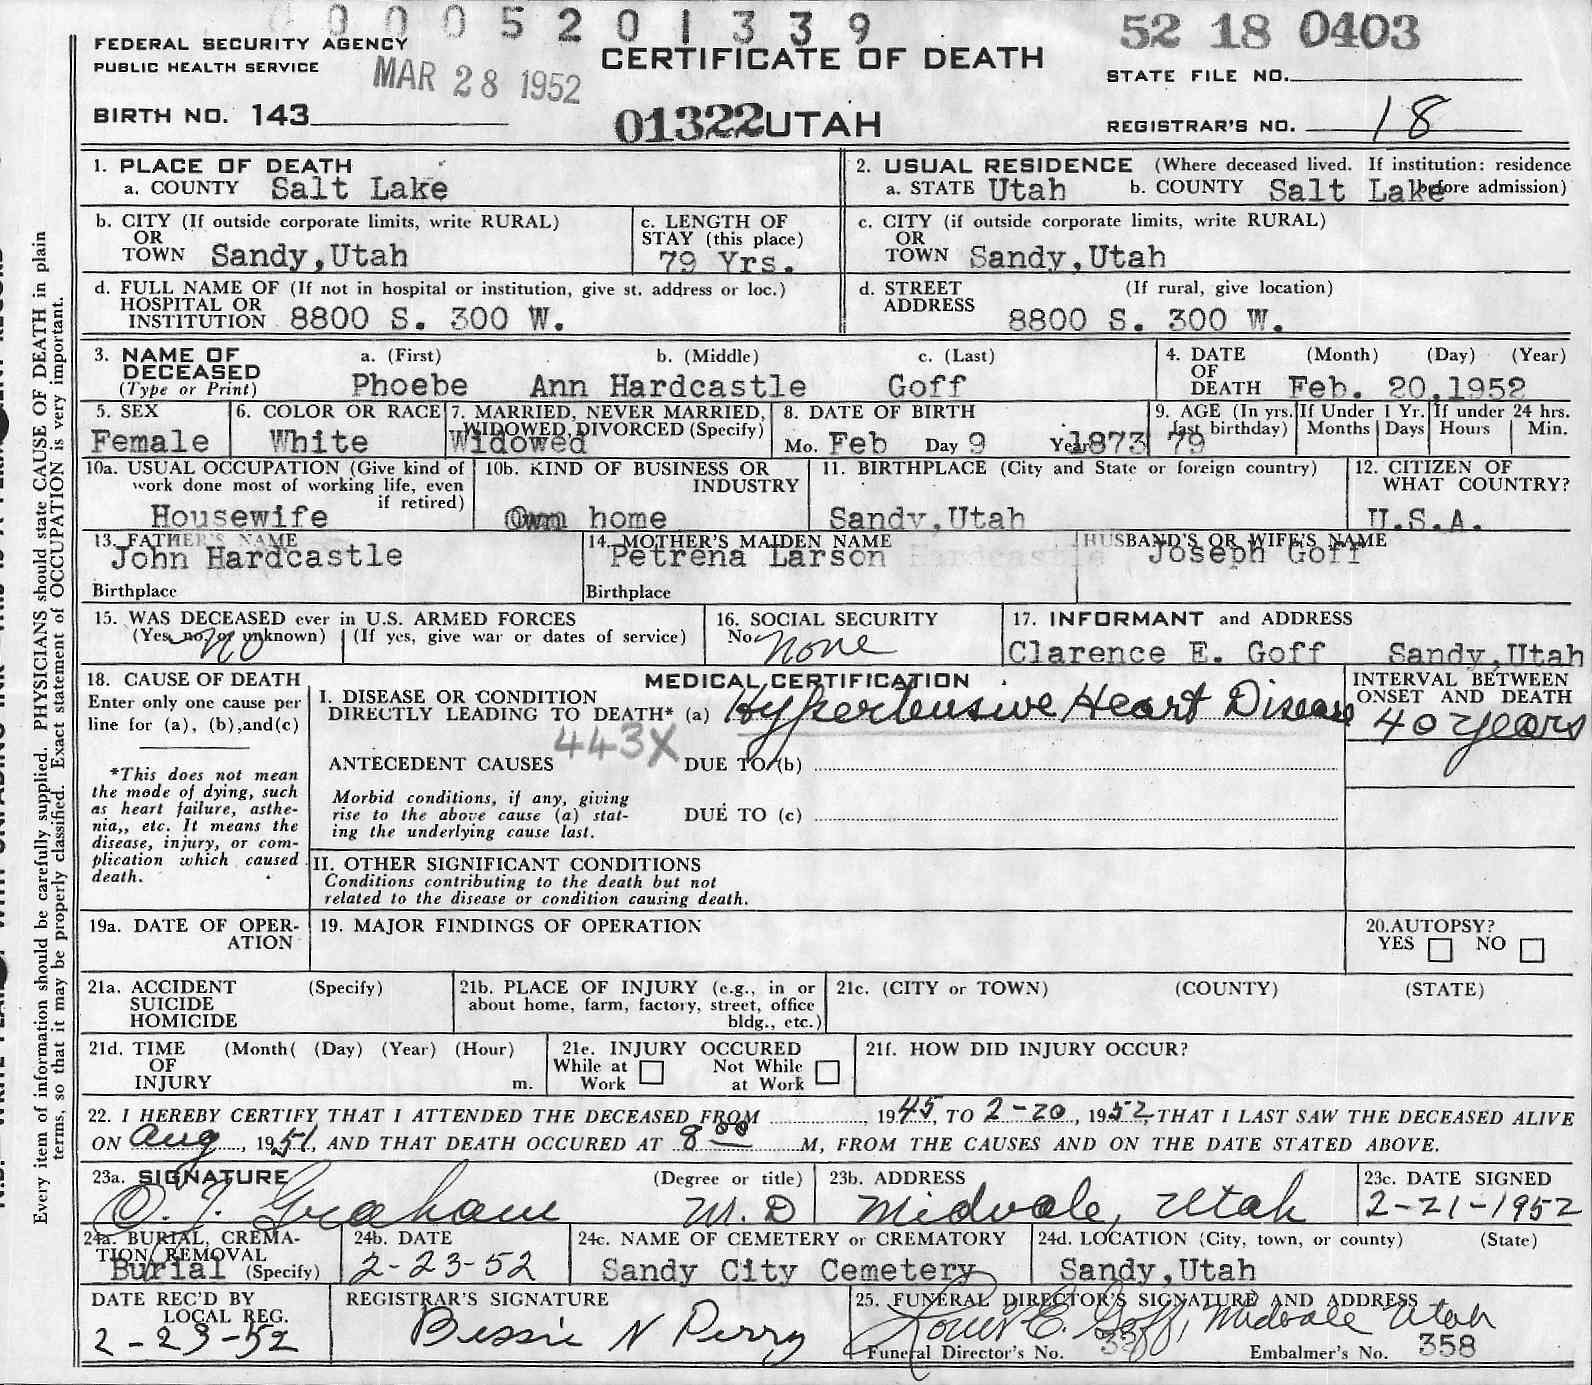 0 0 0 5 2 0 1 3 3 9
52 18 0403
FEDERAL SECURITY AGENCY
PUBLIC HEALTH SERVICE
MAR 28 1952
CERTIFICATE OF DEATH
STATE FILE NO.
BIRTH NO. 143
01322 UTAH
REGISTRAR'S NO. 18
1. PLACE OF DEATH
a. COUNTY Salt Lake
2. USUAL RESIDENCE (Where deceased lived. If institution: residence before admission)
a. STATE Utah b. COUNTY Salt Lake
b. CITY (If outside corporate limits, write RURAL)
OR
TOWN Sandy,Utah
c. LENGTH OF
STAY (this place)
79 Yrs.
c. CITY (if outside corporate limits, write RURAL)
OR
TOWN Sandy,Utah
d. FULL NAME OF (If not in hospital or institution, give st. address or loc.)
HOSPITAL OR
INSTITUTION 8800 S. 300 W.
d. STREET (If rural, give location)
ADDRESS
8800 S. 300 W.
3. NAME OF
DECEASED
(Type or Print)
a. (First) b. (Middle) c. (Last)
Phoebe Ann Hardcastle Goff
4. DATE (Month) (Day) (Year)
OF
DEATH Feb. 20,1952
5. SEX
Female
6. COLOR OR RACE
White
7. MARRIED, NEVER MARRIED,
WIDOWED, DIVORCED (Specify)
Widowed
8. DATE OF BIRTH
Mo. Feb Day 9 Year 1873
9. AGE (In yrs.
last birthday)
79
If Under 1 Yr.
Months Days
If under 24 hrs.
Hours Min.
10a. USUAL OCCUPATION (Give kind of
work done most of working life, even
if retired)
Housewife
10b. KIND OF BUSINESS OR
INDUSTRY
Own home
11. BIRTHPLACE (City and State or foreign country)
Sandy,Utah
12. CITIZEN OF
WHAT COUNTRY?
U.S.A.
13. FATHER'S NAME
John Hardcastle
Birthplace
14. MOTHER'S MAIDEN NAME
Petrena Larson Hardcastle
Birthplace
HUSBAND'S OR WIFE'S NAME
Joseph Goff
15. WAS DECEASED ever in U.S. ARMED FORCES
(Yes, no, or unknown) (If yes, give war or dates of service)
No
16. SOCIAL SECURITY
No. none
17. INFORMANT and ADDRESS
Clarence E. Goff Sandy,Utah
18. CAUSE OF DEATH
Enter only one cause per
line for (a), (b),and(c)
*This does not mean
the mode of dying, such
as heart failure, asthe-
nia,, etc. It means the
disease, injury, or com-
plication which caused
death.
MEDICAL CERTIFICATION
I. DISEASE OR CONDITION
DIRECTLY LEADING TO DEATH* (a) Hypertensive Heart Disease
443X
ANTECEDENT CAUSES DUE TO (b)
Morbid conditions, if any, giving
rise to the above cause (a) stat-
ing the underlying cause last.
DUE TO (c)
INTERVAL BETWEEN
ONSET AND DEATH
40 years
II. OTHER SIGNIFICANT CONDITIONS
Conditions contributing to the death but not
related to the disease or condition causing death.
19a. DATE OF OPER-
ATION
19. MAJOR FINDINGS OF OPERATION
20.AUTOPSY?
YES NO
21a. ACCIDENT (Specify)
SUICIDE
HOMICIDE
21b. PLACE OF INJURY (e.g., in or
about home, farm, factory, street, office
bldg., etc.)
21c. (CITY or TOWN) (COUNTY) (STATE)
21d. TIME (Month( (Day) (Year) (Hour)
OF
INJURY m.
21e. INJURY OCCURED
While at Work
Not While at Work
21f. HOW DID INJURY OCCUR?
22. I HEREBY CERTIFY THAT I ATTENDED THE DECEASED FROM 1945, TO 2-20, 1952, THAT I LAST SAW THE DECEASED ALIVE
ON Aug, 1951, AND THAT DEATH OCCURED AT 8 00 M, FROM THE CAUSES AND ON THE DATE STATED ABOVE.
23a. SIGNATURE (Degree or title)
O. J. Graham M.D
23b. ADDRESS
Midvale, Utah
23c. DATE SIGNED
2-21-1952
24a. BURIAL, CREMA-
TION, REMOVAL
Burial (Specify)
24b. DATE
2-23-52
24c. NAME OF CEMETERY or CREMATORY
Sandy City Cemetery
24d. LOCATION (City, town, or county) (State)
Sandy,Utah
DATE REC'D BY
LOCAL REG.
2-23-52
REGISTRAR'S SIGNATURE
Bessie N Perry
25. FUNERAL DIRECTOR'S SIGNATURE AND ADDRESS
Louis E. Goff, Midvale Utah
Funeral Director's No. Embalmer's No. 358
Every item of information should be carefully supplied. PHYSICIANS should state CAUSE OF DEATH in plain
terms, so that it may be properly classified. Exact statement of OCCUPATION is very important.